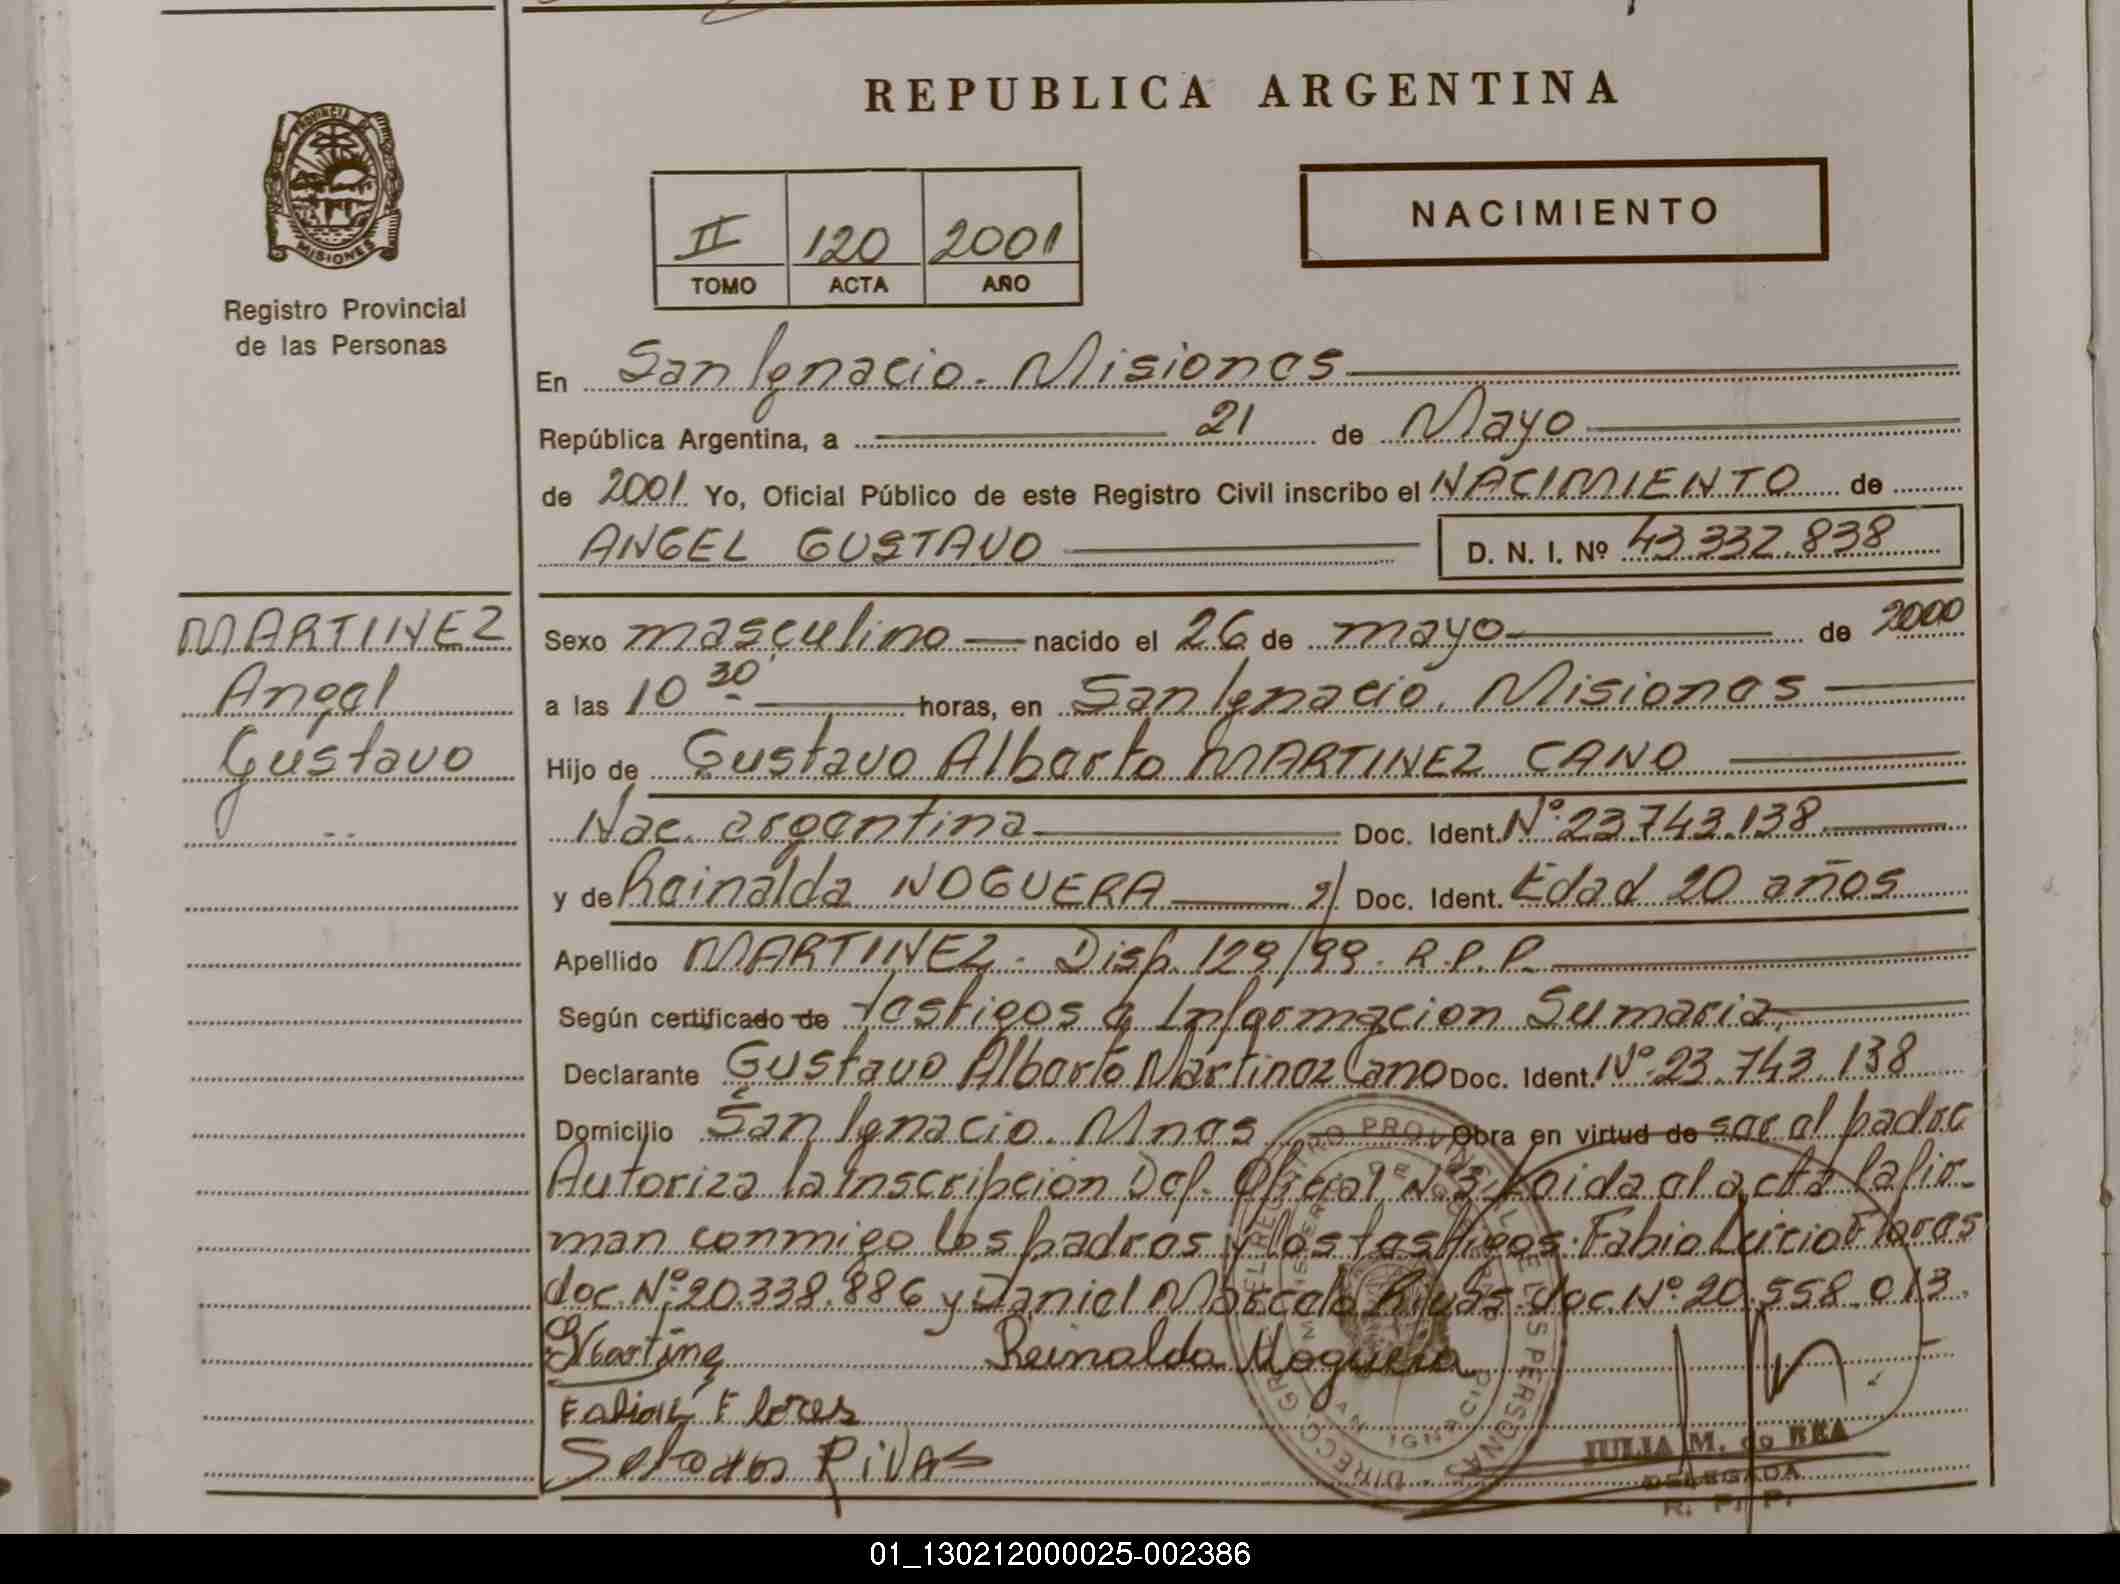 REPUBLICA ARGENTINA
PROVINCIA DE
MISIONES
Registro Provincial
de las Personas
II 120 2001
TOMO ACTA AÑO
NACIMIENTO
En San Ignacio. Misiones
República Argentina, a 21 de Mayo
de 2001 Yo, Oficial Público de este Registro Civil inscribo el NACIMIENTO de
ANGEL GUSTAVO D. N. I. Nº 43.332.838
MARTINEZ
Angel
Gustavo
Sexo masculino nacido el 26 de mayo de 2000
a las 10 30' horas, en San Ignacio. Misiones
Hijo de Gustavo Alberto MARTINEZ CANO
Nac. argentina Doc. Ident. Nº 23.743.138
y de Reinalda NOGUERA s/ Doc. Ident. Edad 20 años
Apellido MARTINEZ. Disp. 129/99. R.P.P.
Según certificado de testigos e Informacion Sumaria
Declarante Gustavo Alberto Martinez Cano Doc. Ident. Nº 23.743.138
Domicilio San Ignacio. Mnes Obra en virtud de ser el padre
Autoriza la Inscripcion Def. Oficial Nº 3 al acta la fir-
man conmigo los padres y los testigos: Fabio Lucio Flores
doc. Nº 20.338.886 y Daniel Marcelo Rivas. doc Nº 20.558.013.
Reinalda Noguera
Flores
RIVAS
JULIA M. de REA
DELEGADA
R. P. P.
01_130212000025-002386